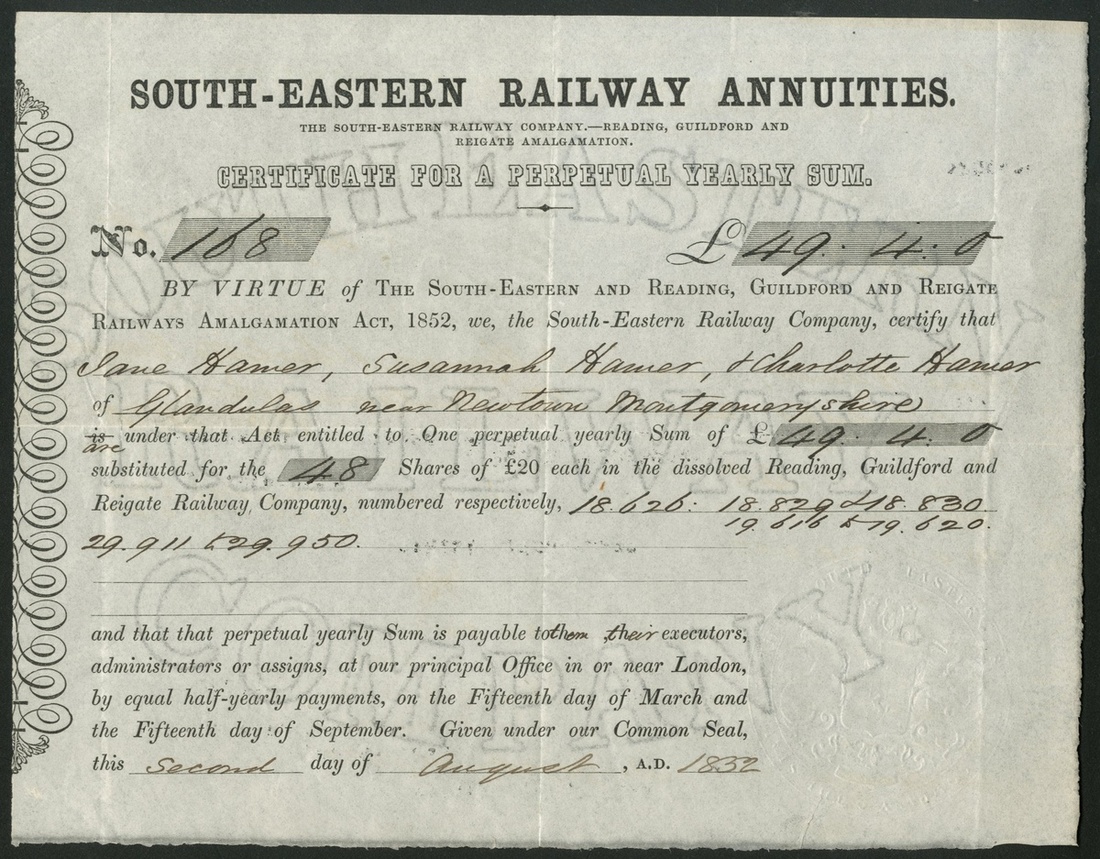 SOUTH-EASTERN RAILWAY ANNUITIES.
THE SOUTH-EASTERN RAILWAY COMPANY.—READING, GUILDFORD AND
REIGATE AMALGAMATION.
CERTIFICATE FOR A PERPETUAL YEARLY SUM.
No. 168 £49: 4: 0
BY VIRTUE of THE SOUTH-EASTERN AND READING, GUILDFORD AND REIGATE
RAILWAYS AMALGAMATION ACT, 1852, we, the South-Eastern Railway Company, certify that
Jane Hamer, Susannah Hamer, & Charlotte Hamer
of Glandulas near Newtown Montgomeryshire
is under that Act entitled to One perpetual yearly Sum of £49: 4: 0
are
substituted for the 48 Shares of £20 each in the dissolved Reading, Guildford and
Reigate Railway Company, numbered respectively, 18.626: 18.829 & 18.830
19.616 to 19.620.
29.911 to 29.950.
and that that perpetual yearly Sum is payable to them their executors,
administrators or assigns, at our principal Office in or near London,
by equal half-yearly payments, on the Fifteenth day of March and
the Fifteenth day of September. Given under our Common Seal,
this second day of August, A.D. 1852
SOUTH EASTERN